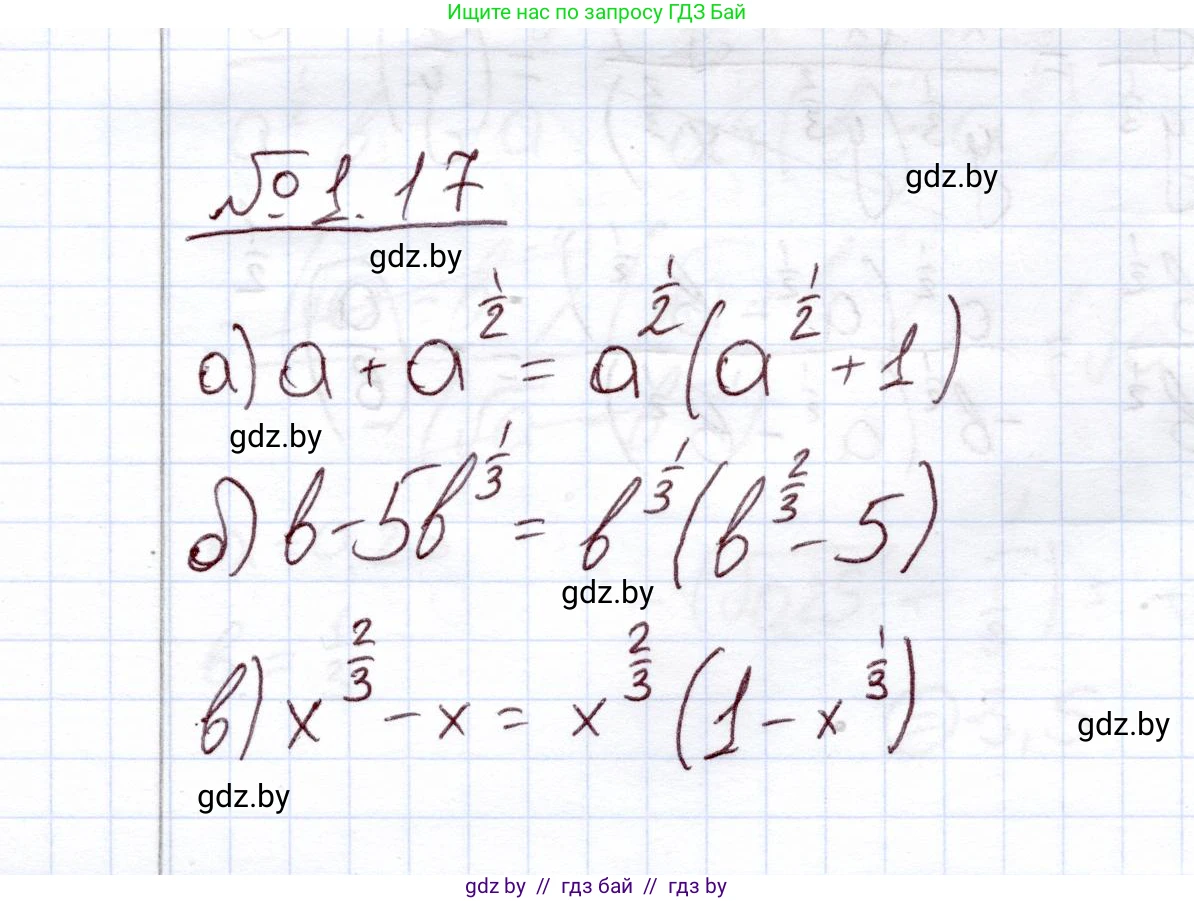 Ищите нас по запросу ГДЗ Бай
№ 1.17
gdz.by
gdz.by
а) a + a^{1/2} = a^{1/2} (a^{1/2} + 1)
gdz.by
б) b - 5b^{1/3} = b^{1/3} (b^{2/3} - 5)
gdz.by
в) x^{2/3} - x = x^{2/3} (1 - x^{1/3})
gdz.by
gdz.by
gdz by // гдз бай // гдз by